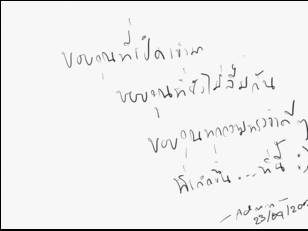 ขอบคุณที่เปิดเข้ามา
ขอบคุณที่ยังไม่ลืมกัน
ขอบคุณทุกความทรงจำดีๆ
ที่เกิดขึ้น...ที่นี่ :)
- Admin -
23/09/20